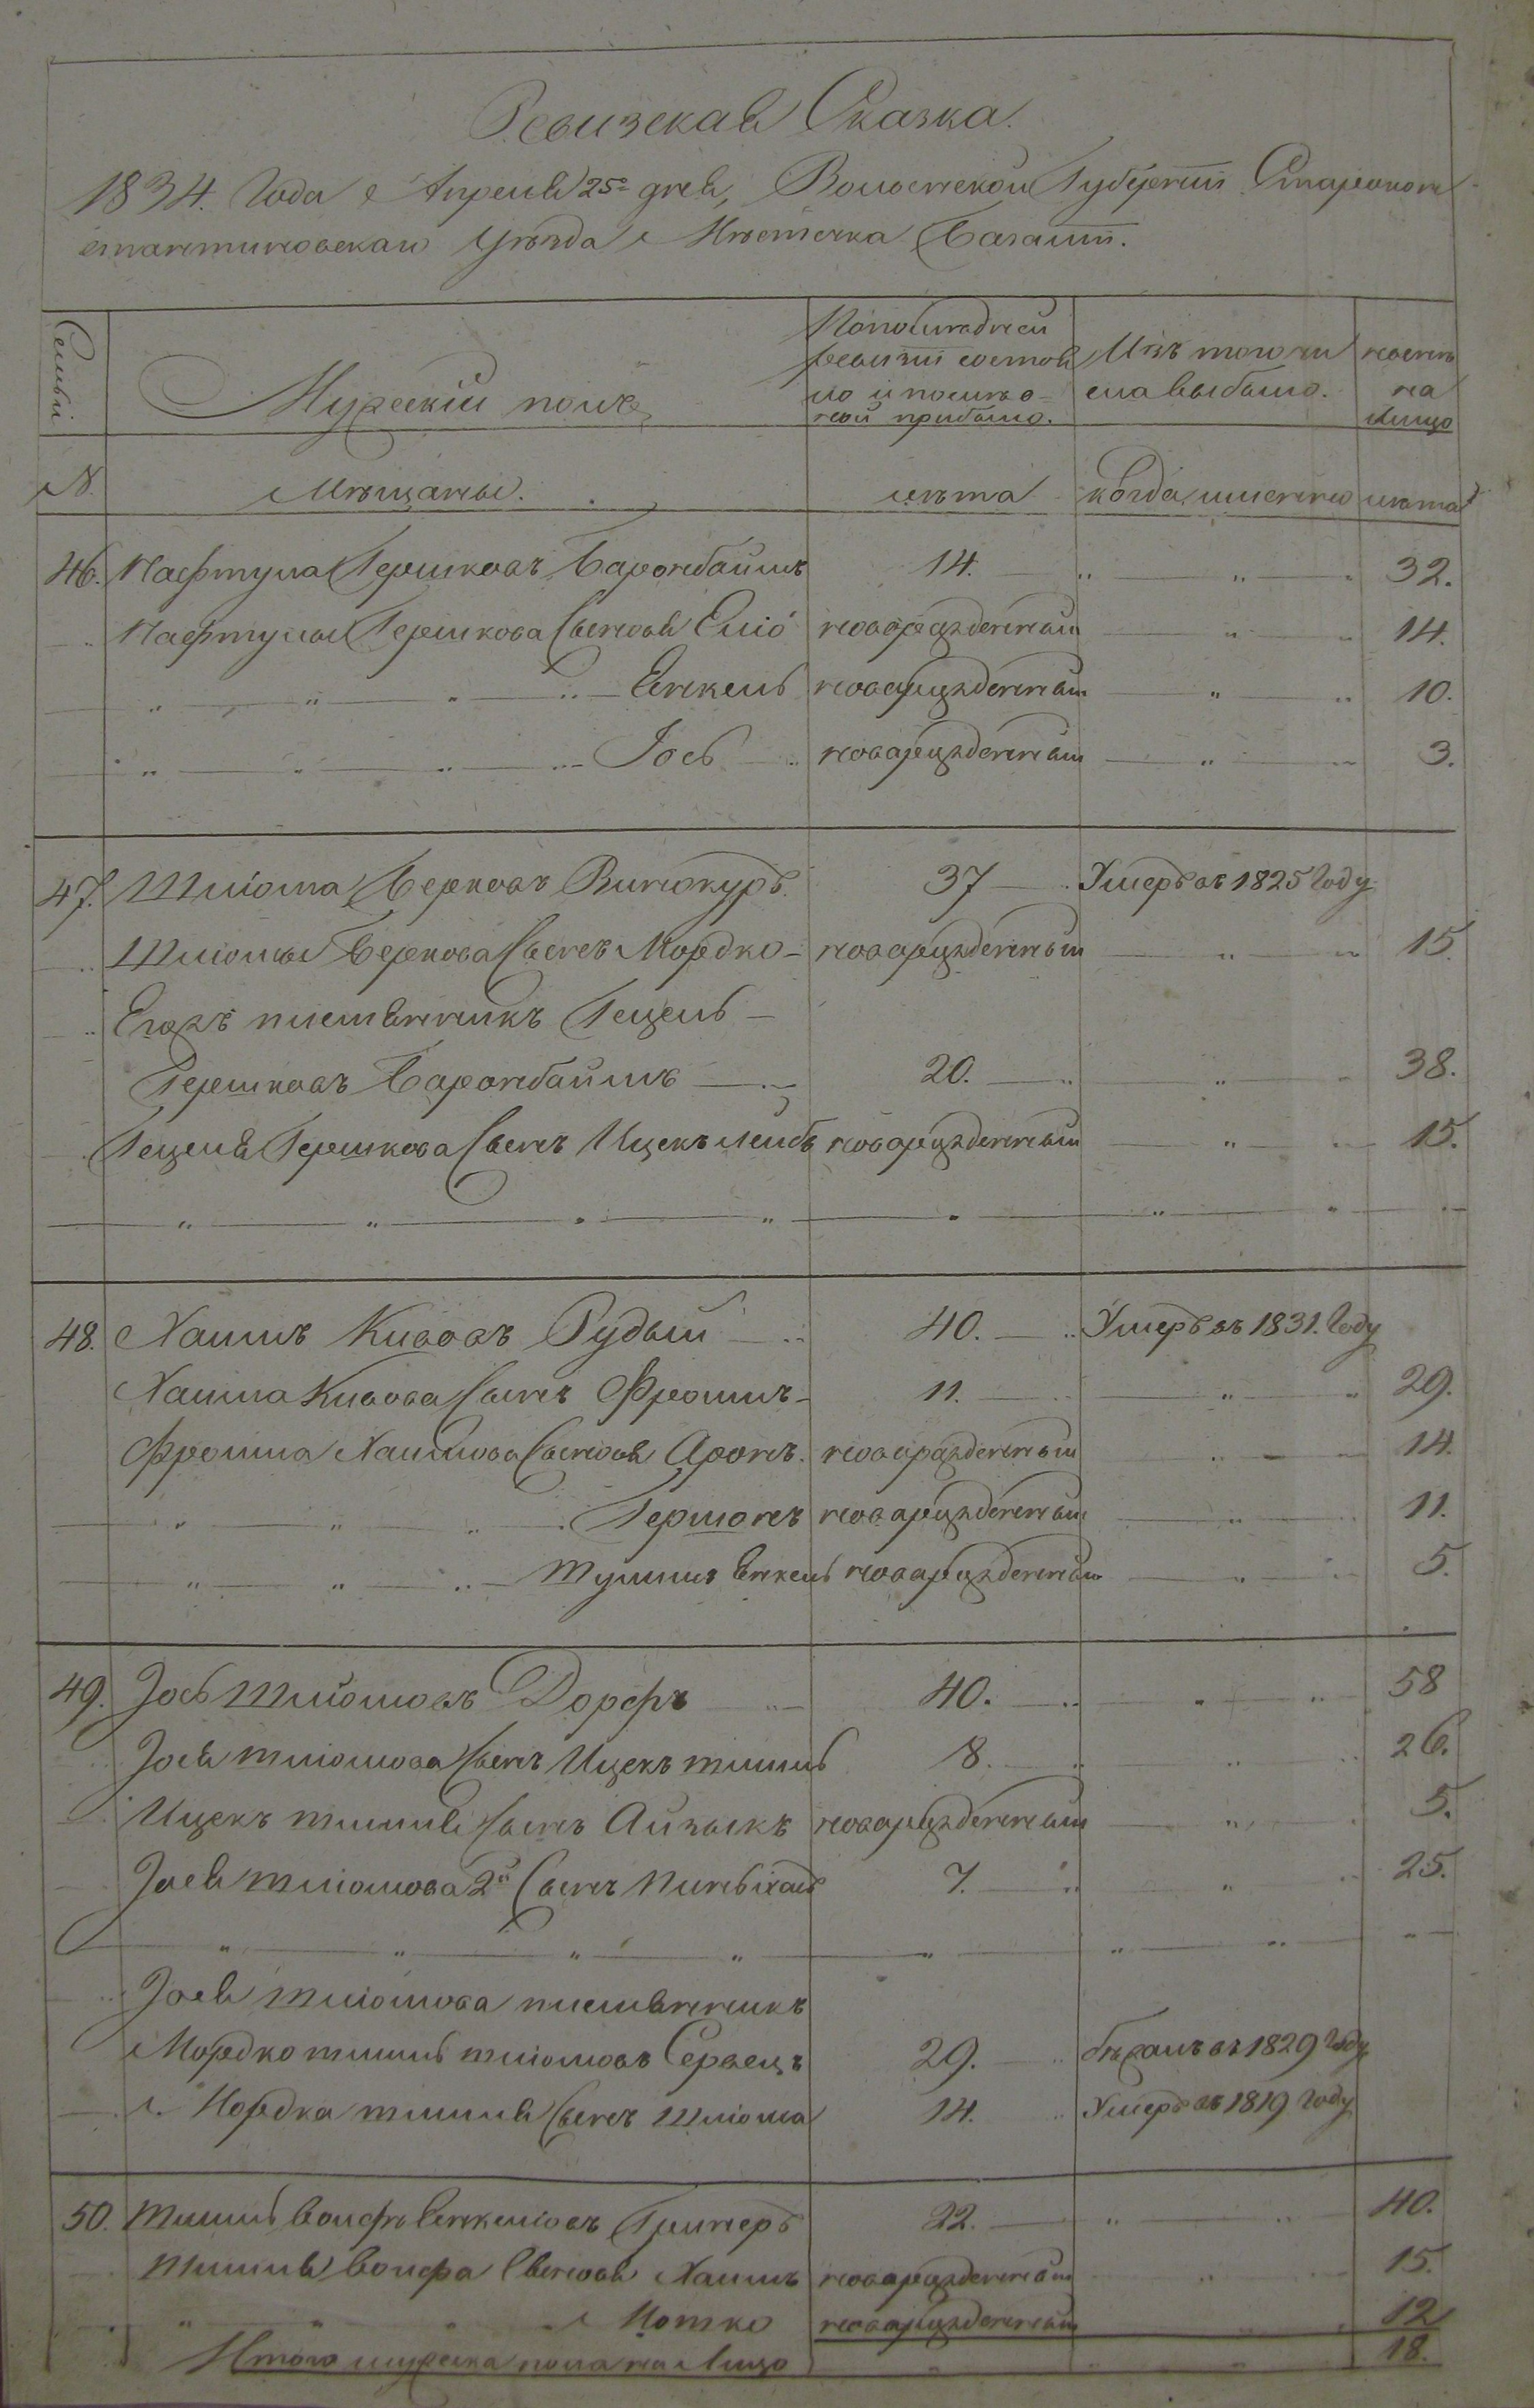 Ревизская Сказка.
1834. Года Апреля 25го дня, Волынской Губернии Старокон
стантиновскаго Уѣзда Мѣстечка Базалии.
Семьи
Мужескій полъ
По последней
ревизіи состоя
ло и послѣ о-
ной прибыло.
Изъ того чи
сла выбыло.
нынѣ
на
лицо
№
Мѣщаны.
лѣта
когда именно
лѣта
46. Нафтула Гершковъ Баренбаймъ 14. " " 32.
" Нафтулы Гершкова Сыновья Еліо новорожденный " " 14.
" " " " Енкель новорожденный " " 10.
" " " " Іось новорожденный " " 3.
47. Шліома Берковъ Винокуръ 37 Умеръ въ 1825 Году
" Шліомы Беркова Сынъ Мордко новорожденный " " 15.
" Егожъ племянникъ Гецель
Гершковъ Баренбаймъ 20. " " 38.
Гецеля Гершкова Сынъ Ицекъ лейбъ новорожденный " " 15.
" " " " " " " "
48. Хаимъ Кивовъ Рудый 40. Умеръ въ 1831. Году
Хаима Кивова Сынъ Фроимъ 11. " " 29.
Фроима Хаимова Сыновья Аронъ новорожденный " " 14.
" " " Гершонъ новорожденный " " 11.
" " " Шулимъ Енкель новорожденный " " 5.
49. Іось Шліомовъ Дорфъ 40. " " 58
Іося Шліомова Сынъ Ицекъ шмиль 8. " " 26.
Ицекъ шмиля Сынъ Айзыкъ новорожденный " " 5.
Іося Шліомова 2й Сынъ Пиньхасъ 7. " " 25.
" " " " " " " "
Іося Шліомова племянникъ
Мордко шмиль шліомовъ Сервецъ 29. бѣжалъ въ 1829 Году
Мордка шмиля Сынъ Шліома 14. Умеръ въ 1819 Году
50. Шмиль Волфъ Енкеліовъ Гринеръ 22. " " 40.
Шмиля Волфа Сыновья Хаимъ новорожденный " " 15.
" " " Мотко новорожденный " " 12
Итого мужеска пола на Лицо " " " 18.